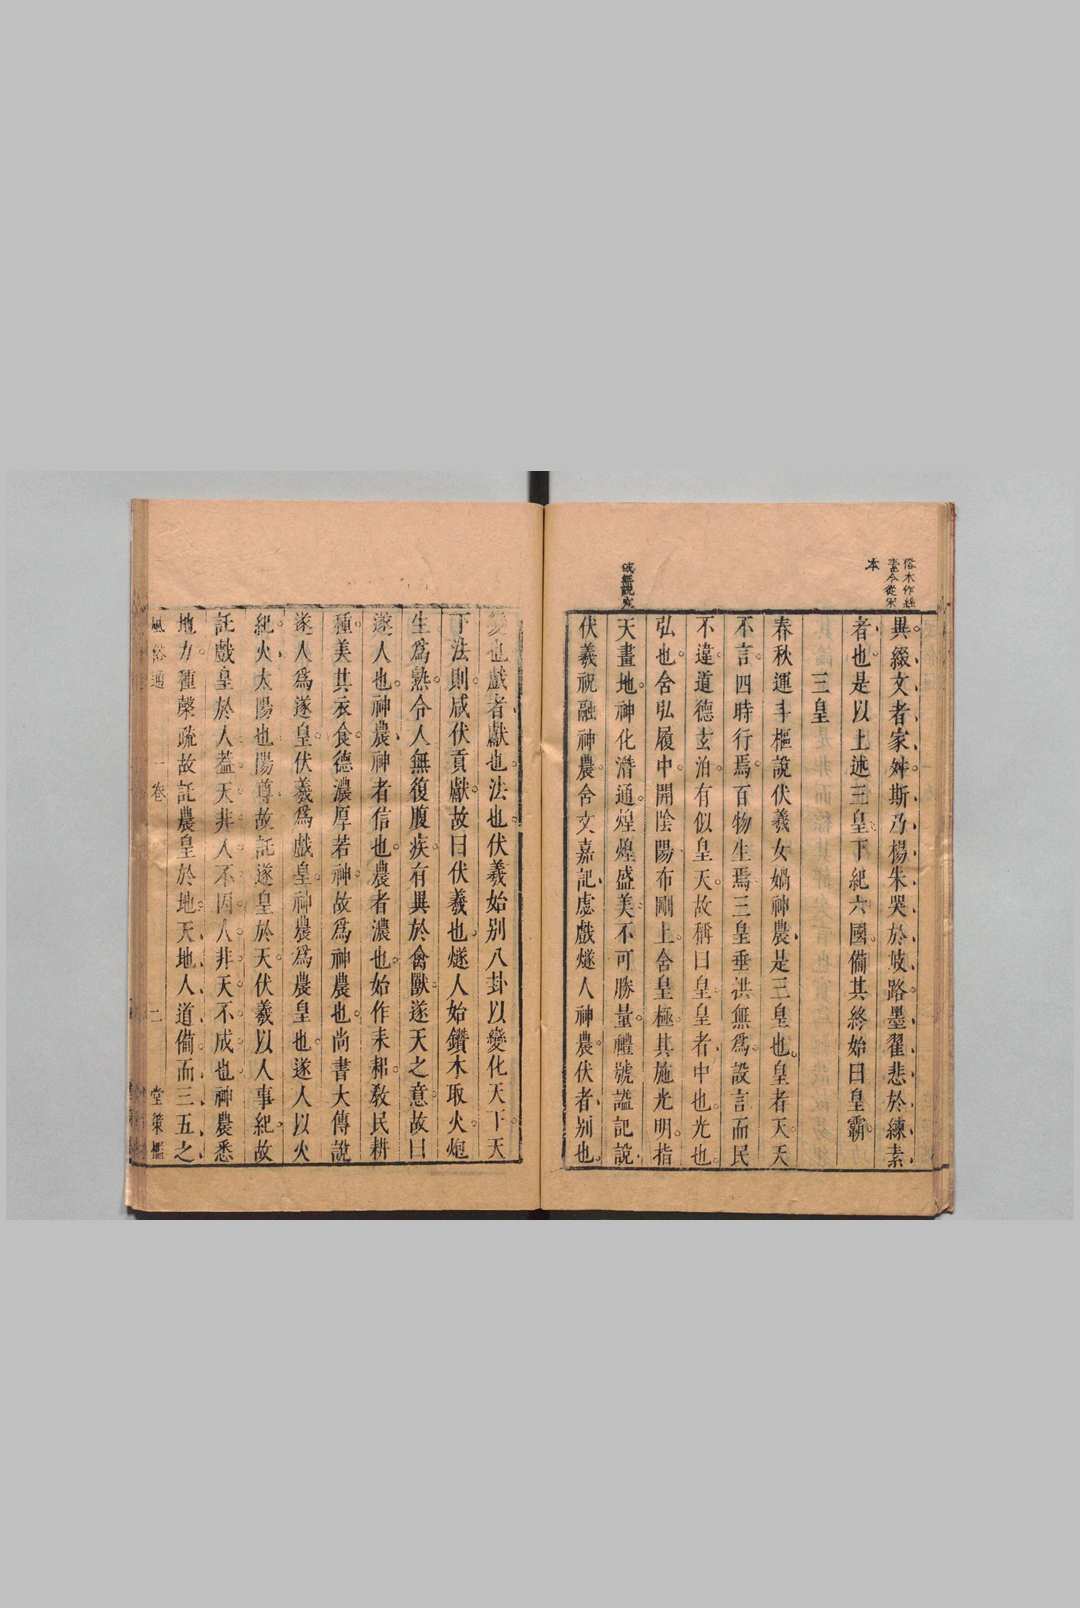 俗本作絲
素今從宋
本
異綴文者家舛斯乃楊朱哭於岐路墨翟悲於練素
者也是以上述三皇下紀六國備其終始曰皇霸
三皇
春秋運斗樞說伏羲女媧神農是三皇也皇者天天
不言四時行焉百物生焉三皇垂拱無為設言而民
不違道德玄泊有似皇天故稱曰皇皇者中也光也
弘也含弘履中開陰陽布剛上含皇極其施光明指
天畫地神化潛通煌煌盛美不可勝量禮號謚記說
伏羲祝融神農含文嘉記虙戲燧人神農伏者别也
變也戲者獻也法也伏羲始别八卦以變化天下天
下法則咸伏貢獻故曰伏羲也燧人始鑽木取火炮
生為熟令人無復腹疾有異於禽獸遂天之意故曰
遂人也神農神者信也農者濃也始作耒耜教民耕
種美其衣食德濃厚若神故為神農也尚書大傳說
遂人為遂皇伏羲為戲皇神農為農皇也遂人以火
紀火太陽也陽尊故託遂皇於天伏羲以人事紀故
託戲皇於人葢天非人不因人非天不成也神農悉
地力種榖疏故託農皇於地天地人道備而三五之
風俗通 一卷 二 堂策檻